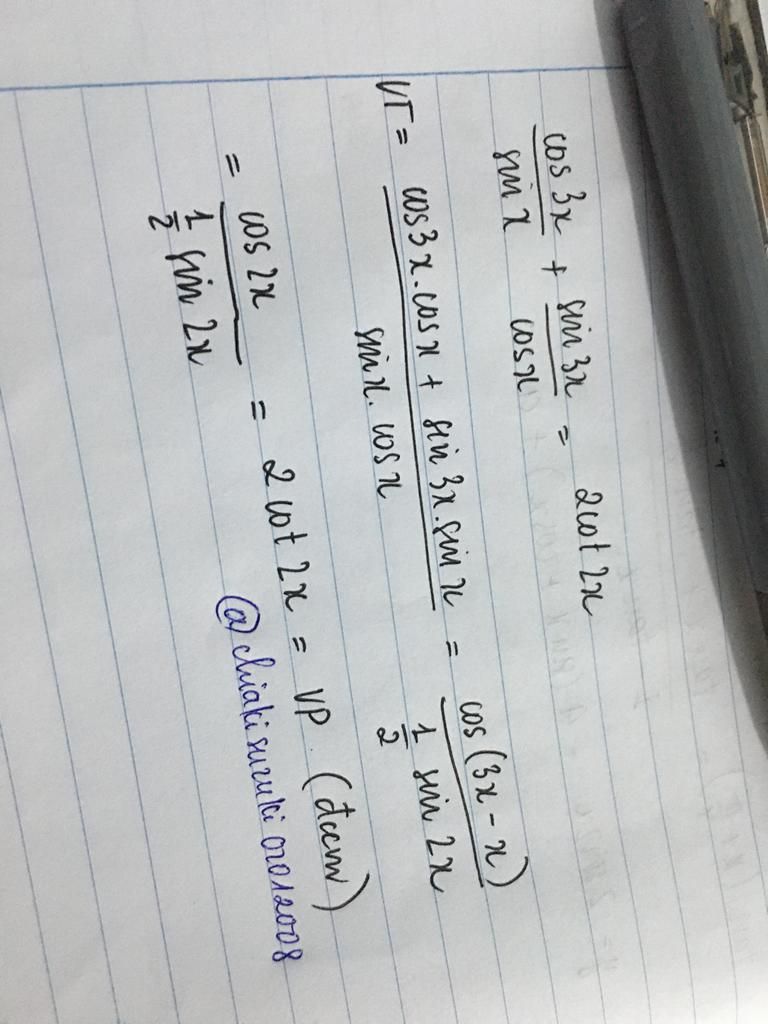 cos 3x / sin x + sin 3x / cos x = 2 cot 2x
VT = cos 3x . cos x + sin 3x . sin x / sin x . cos x = cos (3x - x) / 1/2 sin 2x
= cos 2x / 1/2 sin 2x = 2 cot 2x = VP. (đccm)
@chiaki suzuki 02012008